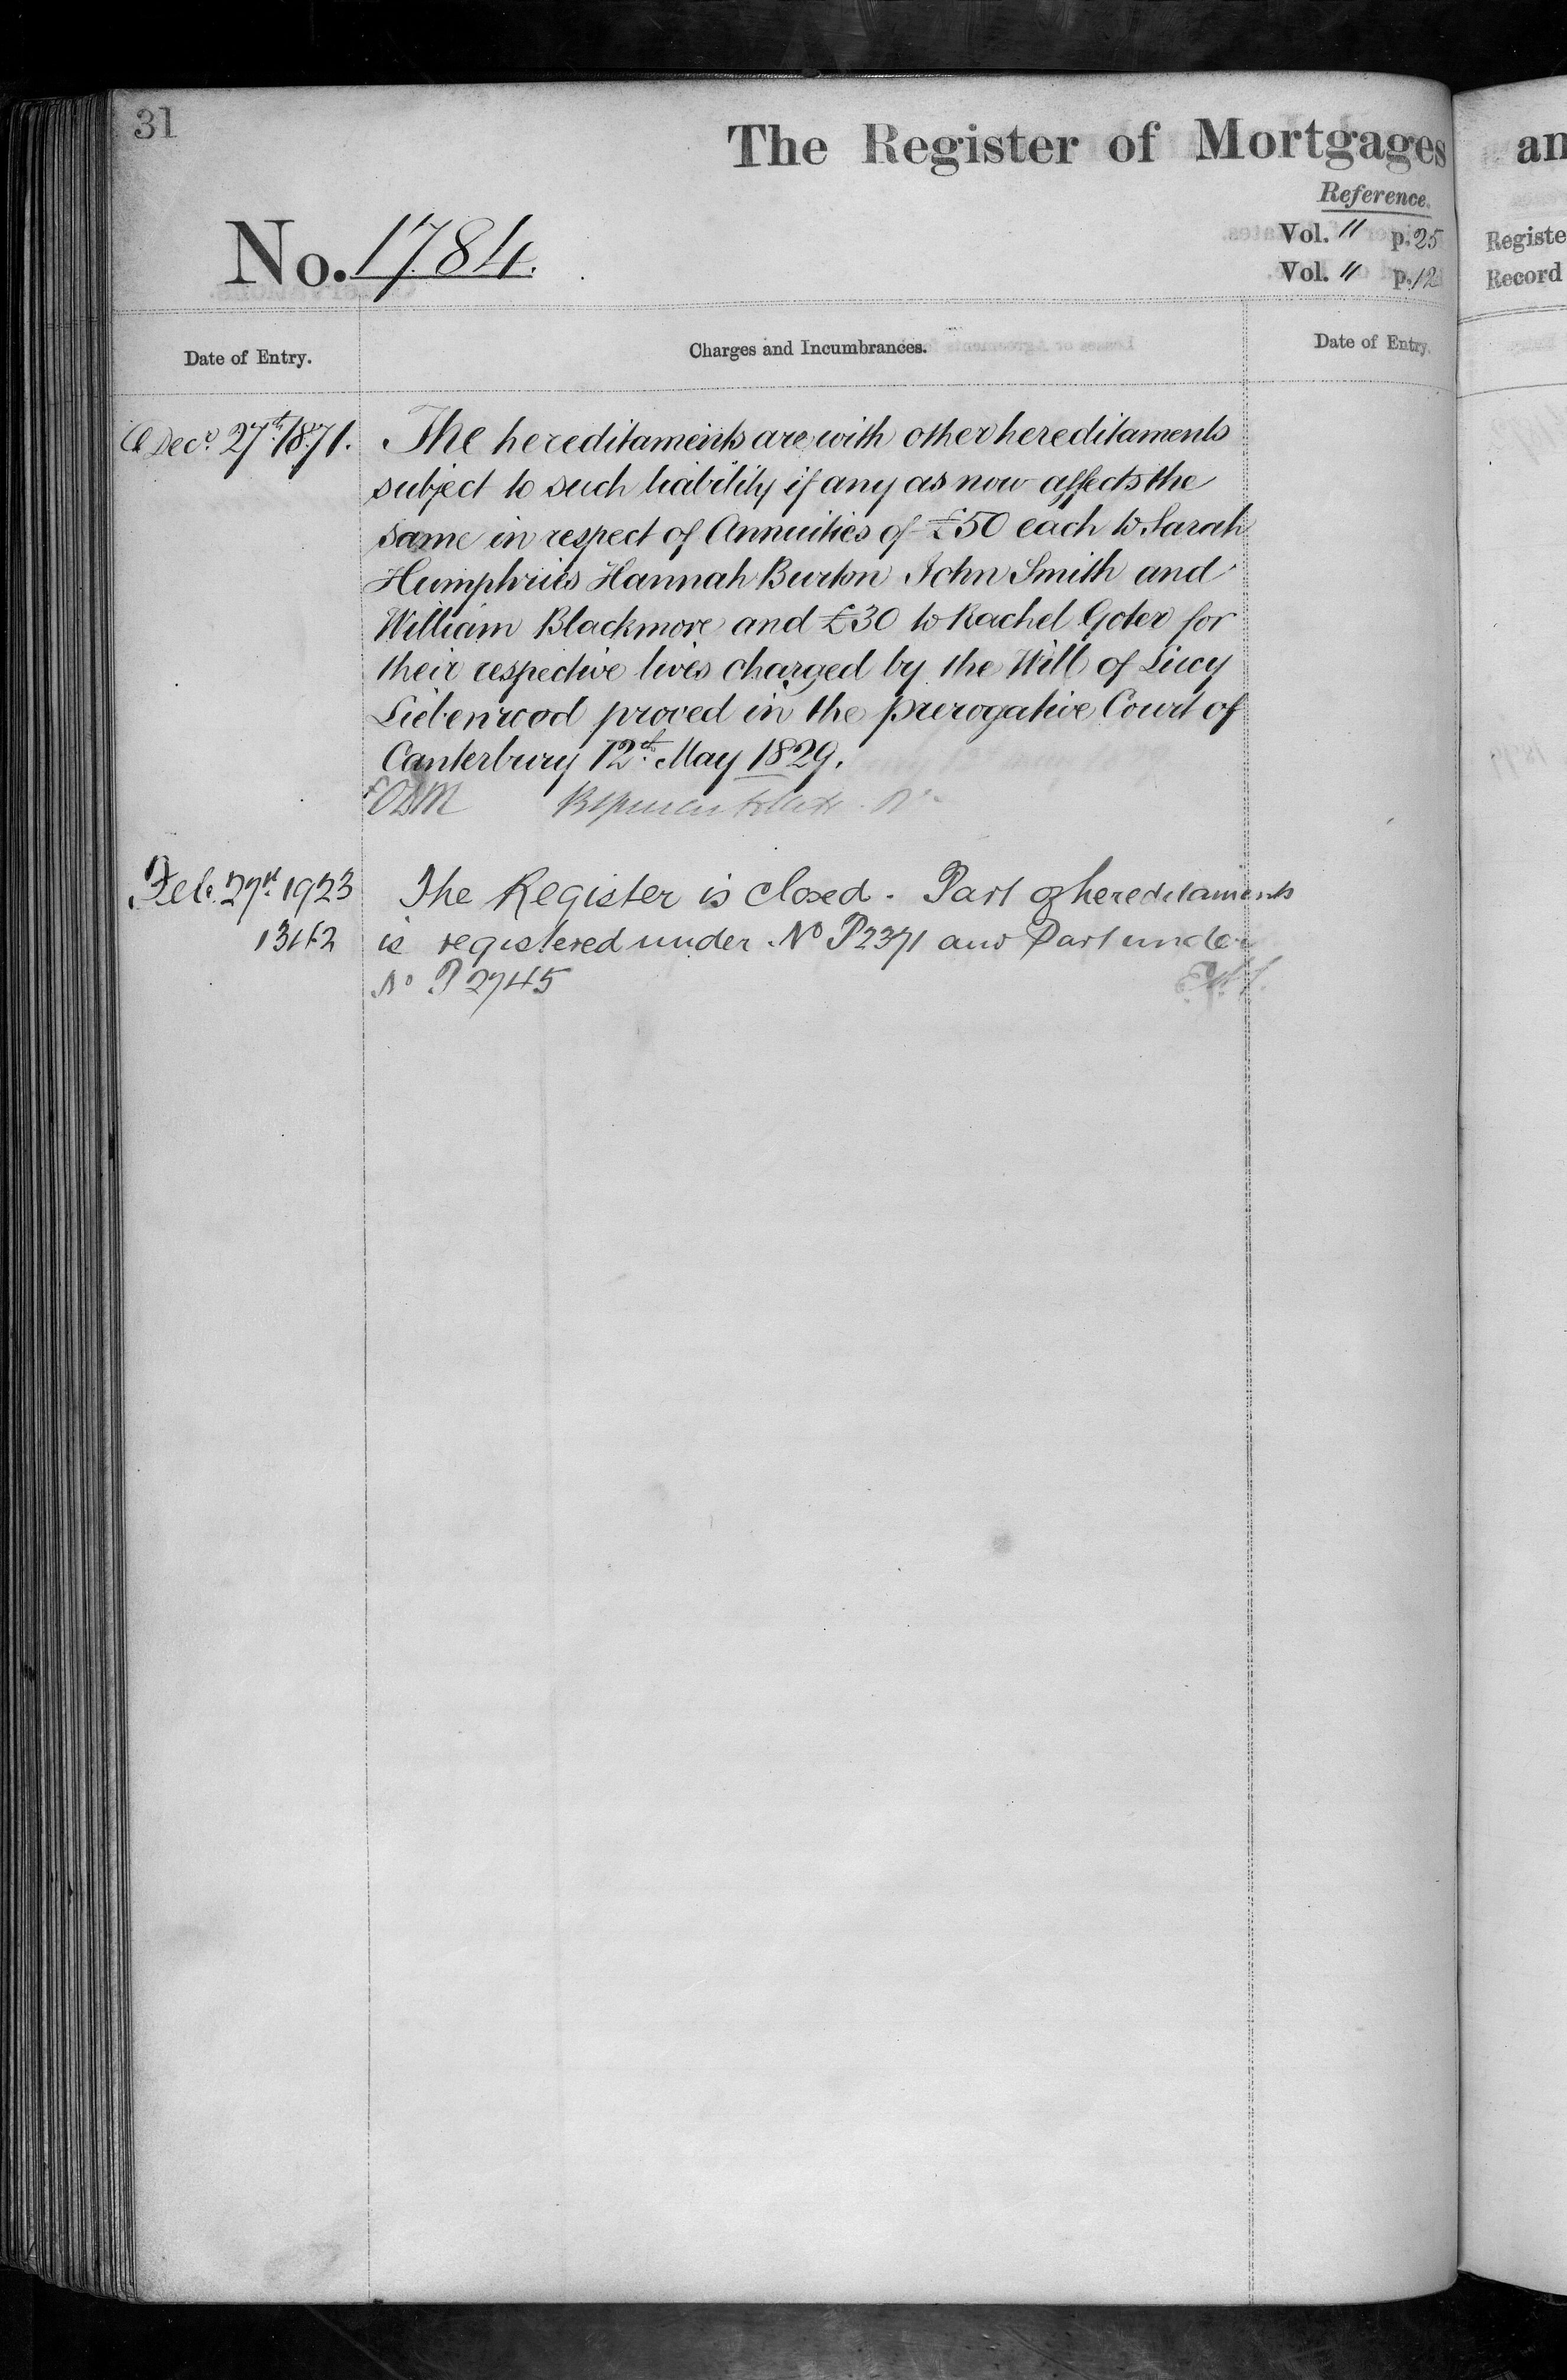 31
The Register of Mortgages
an
Reference.
No. 1784.
Vol. 11 p. 25
Registe
Vol. 11 p. 12
Record
Date of Entry.
Charges and Incumbrances.
Date of Entry.
Decr 27th 1871.
The hereditaments are with other hereditaments
subject to such liability if any as now affects the
same in respect of Annuities of £50 each to Sarah
Humphries Hannah Burton John Smith and
William Blackmore and £30 to Rachel Goter for
their respective lives charged by the Will of Lucy
Liebenrood proved in the prerogative Court of
Canterbury 12th May 1829.
Feb. 27th 1923
The Register is closed. Part of hereditaments
is registered under No P2371 and Part under
No P 2745